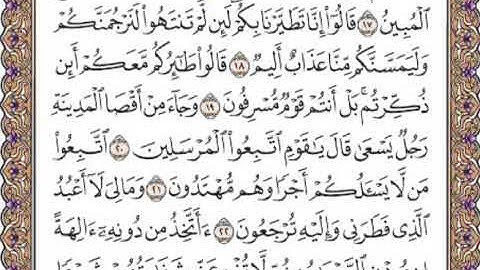 ٱلْمُبِينُ ١٧ قَالُوٓا۟ إِنَّا تَطَيَّرْنَا بِكُمْ لَئِن لَّمْ تَنتَهُوا۟ لَنَرْجُمَنَّكُمْ
وَلَيَمَسَّنَّكُم مِّنَّا عَذَابٌ أَلِيمٌ ١٨ قَالُوا۟ طَـٰٓئِرُكُم مَّعَكُمْ أَئِن
ذُكِّرْتُم بَلْ أَنتُمْ قَوْمٌ مُّسْرِفُونَ ١٩ وَجَآءَ مِنْ أَقْصَا ٱلْمَدِينَةِ
رَجُلٌ يَسْعَىٰ قَالَ يَـٰقَوْمِ ٱتَّبِعُوا۟ ٱلْمُرْسَلِينَ ٢٠ ٱتَّبِعُوا۟
مَن لَّا يَسْـَٔلُكُمْ أَجْرًا وَهُم مُّهْتَدُونَ ٢١ وَمَا لِىَ لَآ أَعْبُدُ
ٱلَّذِى فَطَرَنِى وَإِلَيْهِ تُرْجَعُونَ ٢٢ ءَأَتَّخِذُ مِن دُونِهِۦٓ ءَالِهَةً